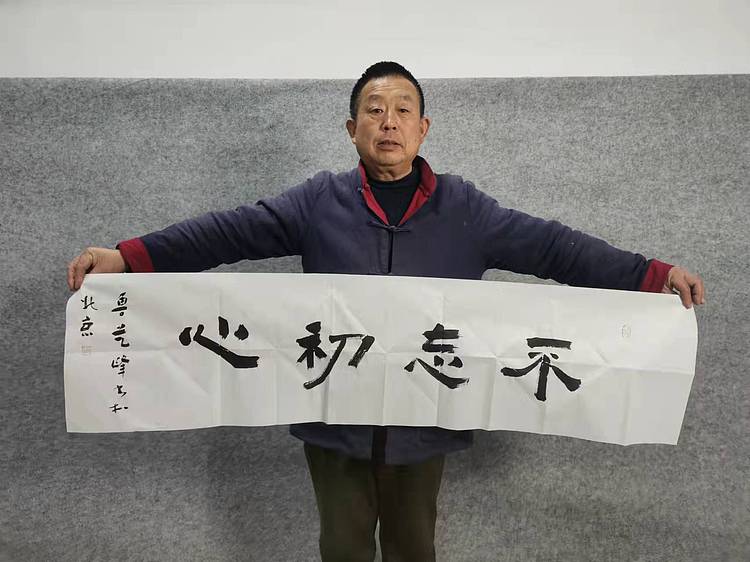 不忘初心
艺峰书于
北京